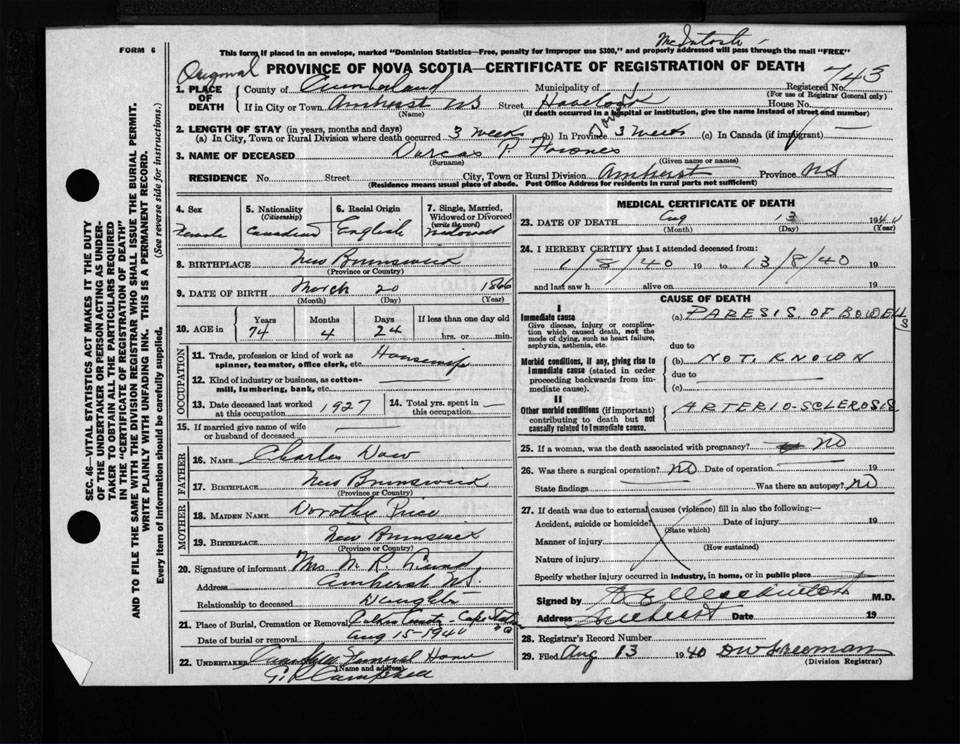 FORM 6
This form if placed in an envelope, marked "Dominion Statistics—Free, penalty for improper use $300," and properly addressed will pass through the mail "FREE"
McIntosh
Original PROVINCE OF NOVA SCOTIA—CERTIFICATE OF REGISTRATION OF DEATH
743
1. PLACE OF DEATH County of Cumberland Municipality of Registered No.
(For use of Registrar General only)
If in City or Town Amherst NS Street Havelock House No.
(Name) (If death occurred in a hospital or institution, give the name instead of street and number)
2. LENGTH OF STAY (in years, months and days)
(a) In City, Town or Rural Division where death occurred 3 weeks (b) In Province 3 weeks (c) In Canada (if immigrant) —
3. NAME OF DECEASED Dorcas P.
(Surname) (Given name or names)
RESIDENCE No. Street City, Town or Rural Division Amherst Province NS
(Residence means usual place of abode. Post Office Address for residents in rural parts not sufficient)
4. Sex Female
5. Nationality (Citizenship) Canadian
6. Racial Origin English
7. Single, Married, Widowed or Divorced (write the word) Widowed
8. BIRTHPLACE New Brunswick
(Province or Country)
9. DATE OF BIRTH March 20 1866
(Month) (Day) (Year)
10. AGE in Years 74 Months 4 Days 24 If less than one day old
hrs. or min.
OCCUPATION
11. Trade, profession or kind of work as spinner, teamster, office clerk, etc. Housewife
12. Kind of industry or business, as cotton-mill, lumbering, bank, etc. —
13. Date deceased last worked at this occupation 1927
14. Total yrs. spent in this occupation —
15. If married give name of wife or husband of deceased
FATHER
16. NAME Charles Dow
17. BIRTHPLACE New Brunswick
(Province or Country)
MOTHER
18. MAIDEN NAME Dorothy Price
19. BIRTHPLACE New Brunswick
(Province or Country)
20. Signature of informant Mrs. N. R.
Address Amherst NS.
Relationship to deceased Daughter
21. Place of Burial, Cremation or Removal
Date of burial or removal Aug 15-1940
22. UNDERTAKER Funeral Home
(Name and address)
G. R. Campbell
MEDICAL CERTIFICATE OF DEATH
23. DATE OF DEATH Aug 13 1940
(Month) (Day) (Year)
24. I HEREBY CERTIFY that I attended deceased from:
1/8/40 19 to 13/8/40 19
and last saw h alive on 19
CAUSE OF DEATH
I
Immediate cause
Give disease, injury or complication which caused death, not the mode of dying, such as heart failure, asphyxia, asthenia, etc.
(a) PARESIS OF BOWELS
due to
Morbid conditions, if any, giving rise to immediate cause (stated in order proceeding backwards from immediate cause).
(b) NOT KNOWN
due to
(c)
II
Other morbid conditions (if important) contributing to death but not causally related to immediate cause.
ARTERIO-SCLEROSIS
25. If a woman, was the death associated with pregnancy? NO
26. Was there a surgical operation? NO Date of operation 19
State findings Was there an autopsy? NO
27. If death was due to external causes (violence) fill in also the following:—
Accident, suicide or homicide? Date of injury 19
(State which)
Manner of injury
(How sustained)
Nature of injury
Specify whether injury occurred in industry, in home, or in public place
Signed by M.D.
Address Amherst Date 19
28. Registrar's Record Number
29. Filed Aug 13 1940 DW Freeman
(Division Registrar)
SEC. 46—VITAL STATISTICS ACT MAKES IT THE DUTY
OF THE UNDERTAKER OR PERSON ACTING AS UNDER-
TAKER TO OBTAIN ALL THE PARTICULARS REQUIRED
IN THE "CERTIFICATE OF REGISTRATION OF DEATH"
AND TO FILE THE SAME WITH THE DIVISION REGISTRAR WHO SHALL ISSUE THE BURIAL PERMIT.
WRITE PLAINLY WITH UNFADING INK. THIS IS A PERMANENT RECORD.
Every item of information should be carefully supplied. (See reverse side for instructions.)